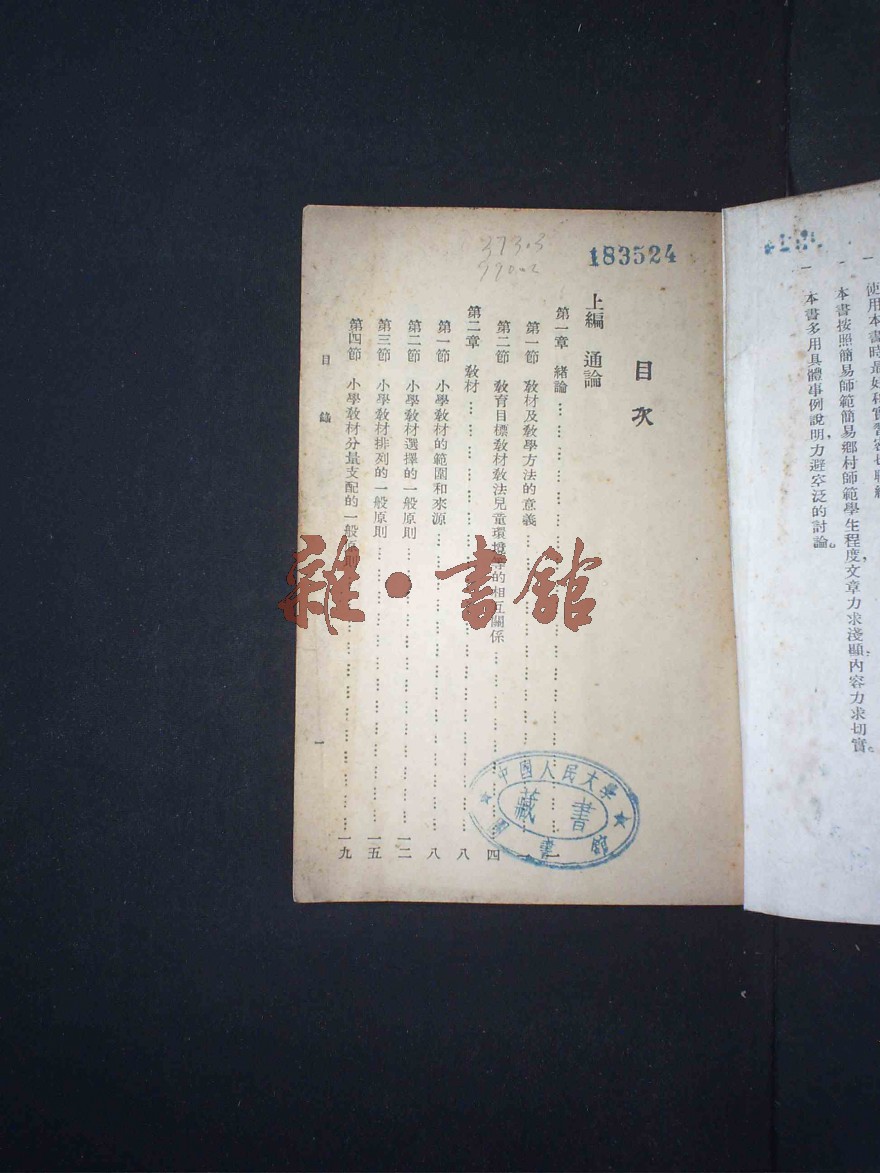 使用本書時最好和實習密切聯絡
一 本書按照簡易師範簡易鄉村師範學生程度，文章力求淺顯，內容力求切實。
一 本書多用具體事例說明，力避空泛的討論。
183524
373.3
990.2
目次
上編 通論
第一章 緒論………一
第一節 教材及教學方法的意義………一
第二節 教育目標教材教法兒童環境等的相互關係………四
第二章 教材………八
第一節 小學教材的範圍和來源………八
第二節 小學教材選擇的一般原則………一二
第三節 小學教材排列的一般原則………一五
第四節 小學教材分量支配的一般原則………一九
目錄
一
中國人民大學
藏書
圖書館
雜·書館